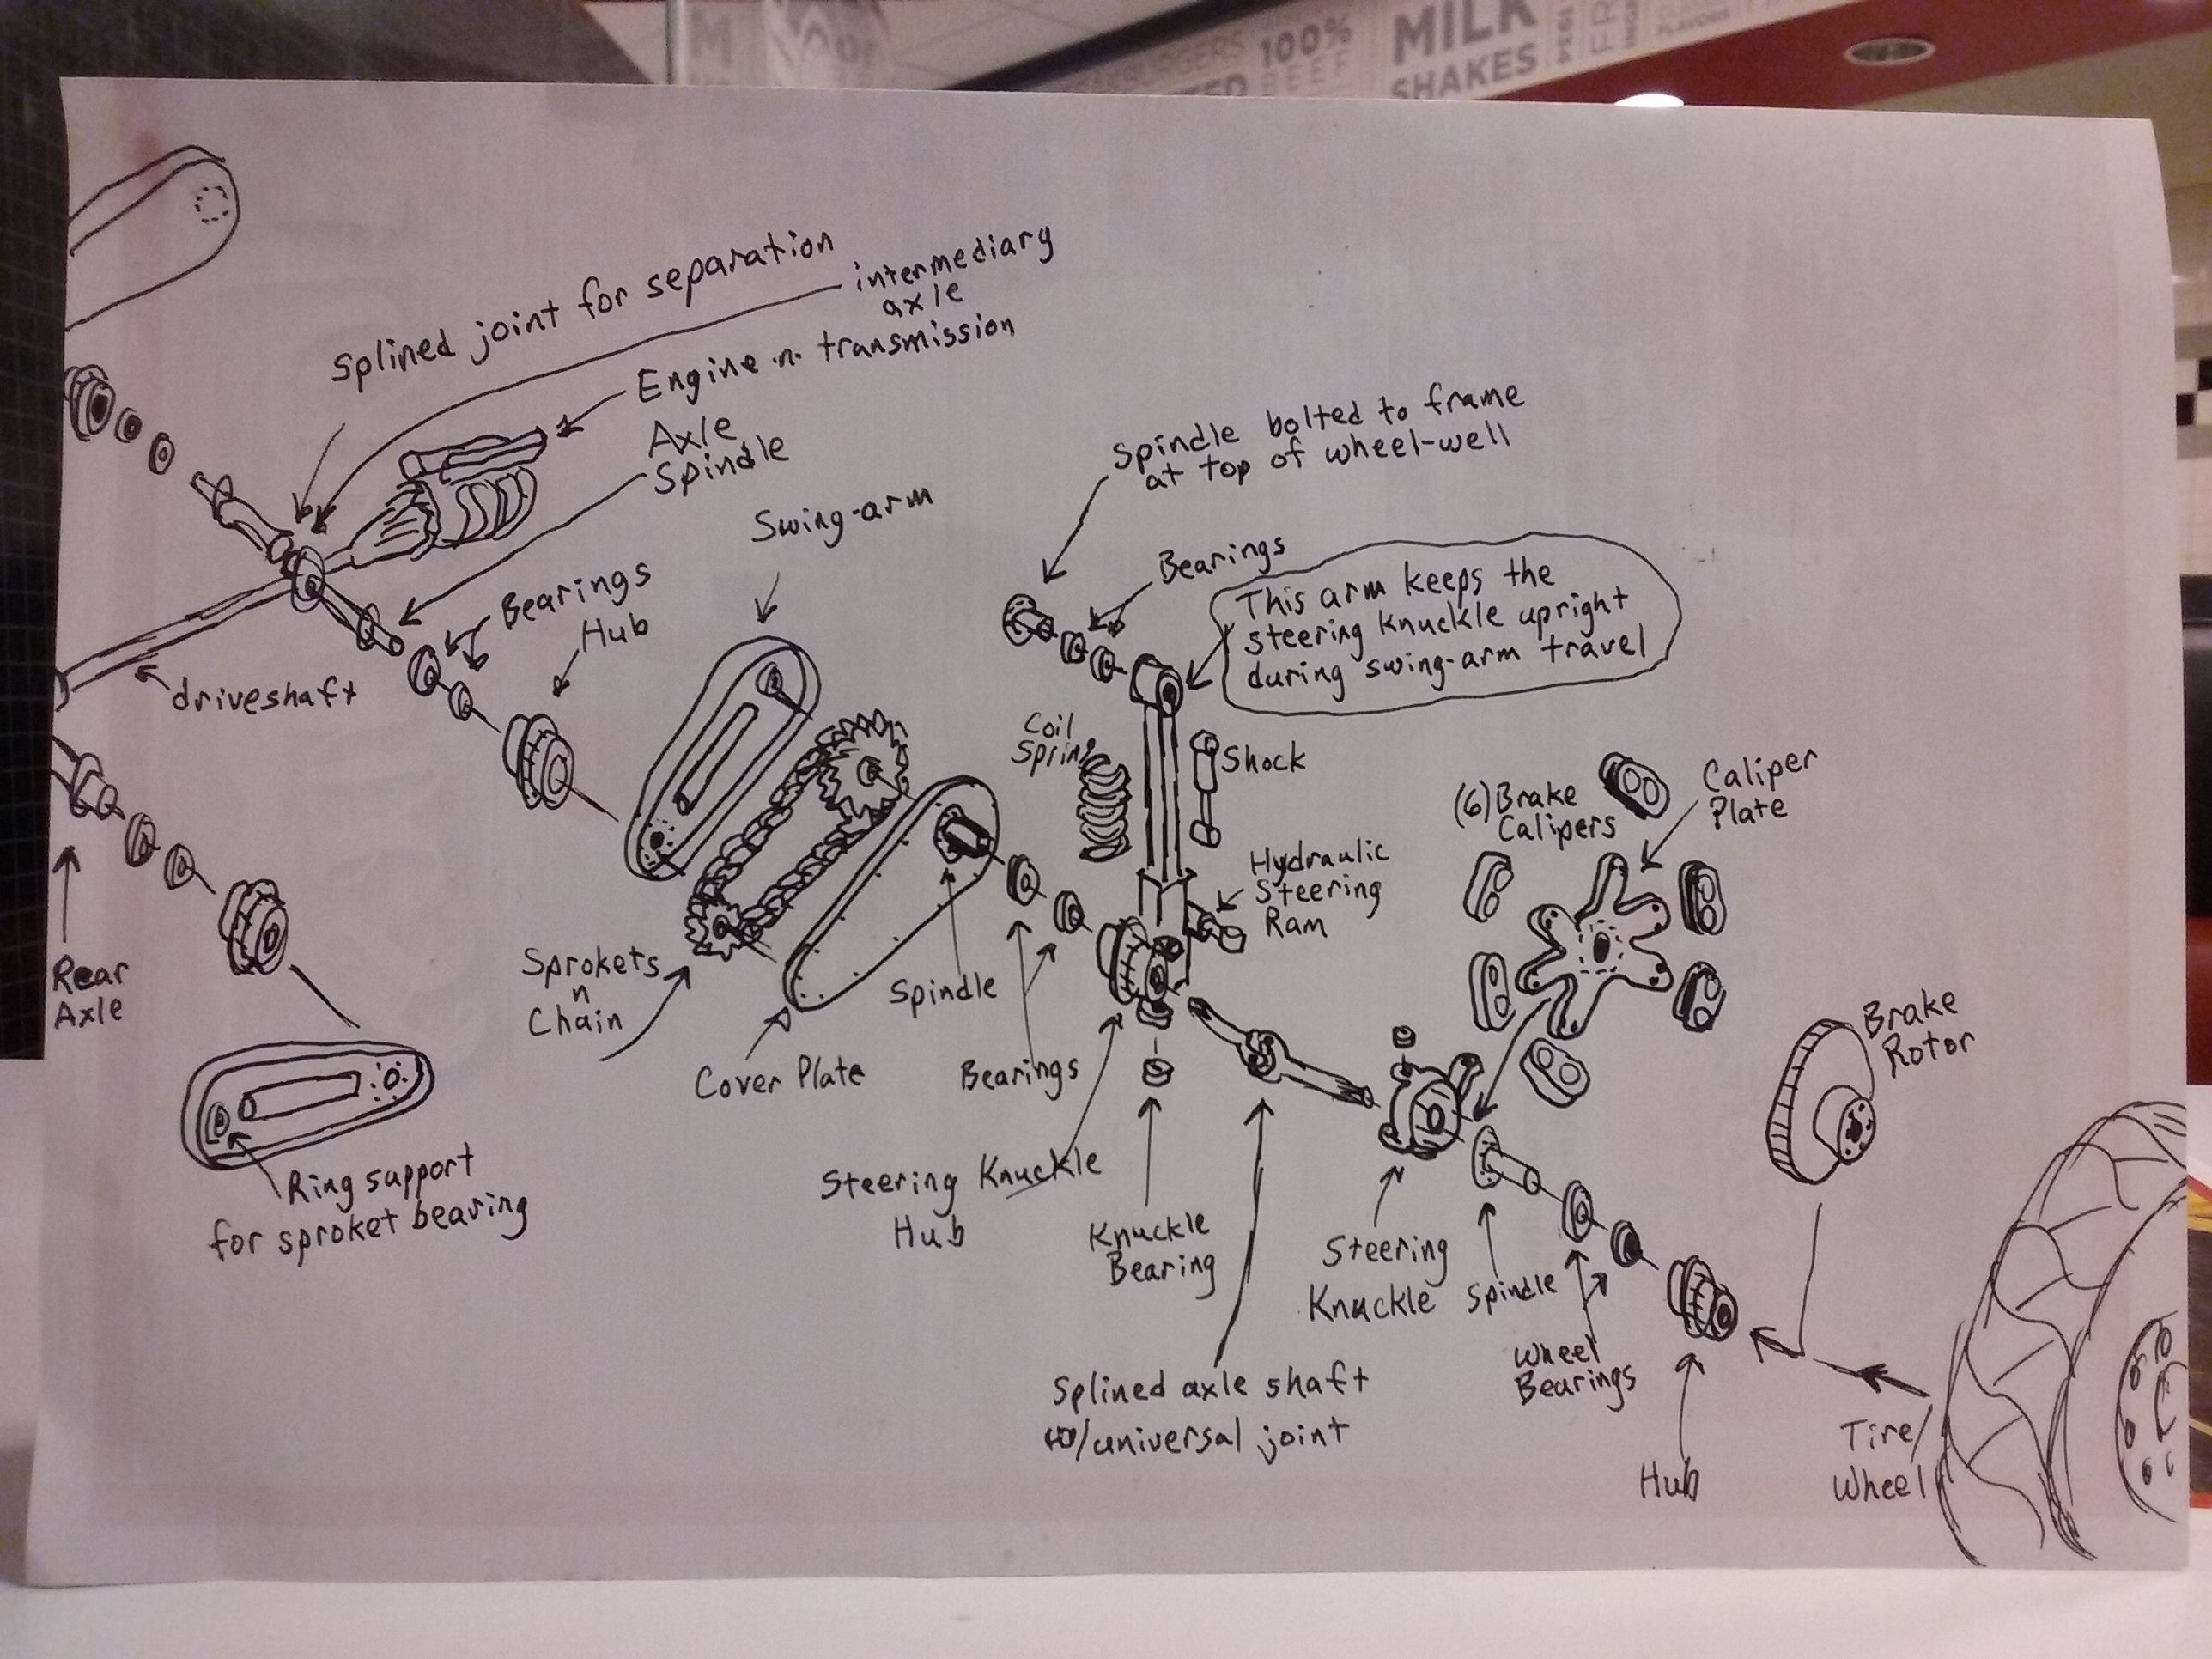 MILK
SHAKES
100%
BEEF
Splined joint for separation
intermediary
axle
Engine n transmission
Axle
Spindle
Swing-arm
Bearings
Hub
driveshaft
Spindle bolted to frame
at top of wheel-well
Bearings
This arm keeps the
steering knuckle upright
during swing-arm travel
Coil
Spring
Shock
(6) Brake
Calipers
Caliper
Plate
Hydraulic
Steering
Ram
Rear
Axle
Sprokets
n
Chain
Spindle
Cover Plate
Bearings
Brake
Rotor
Ring support
for sproket bearing
Steering Knuckle
Hub
Knuckle
Bearing
Steering
Knuckle
Spindle
Wheel
Bearings
Splined axle shaft
w/universal joint
Hub
Tire/
Wheel